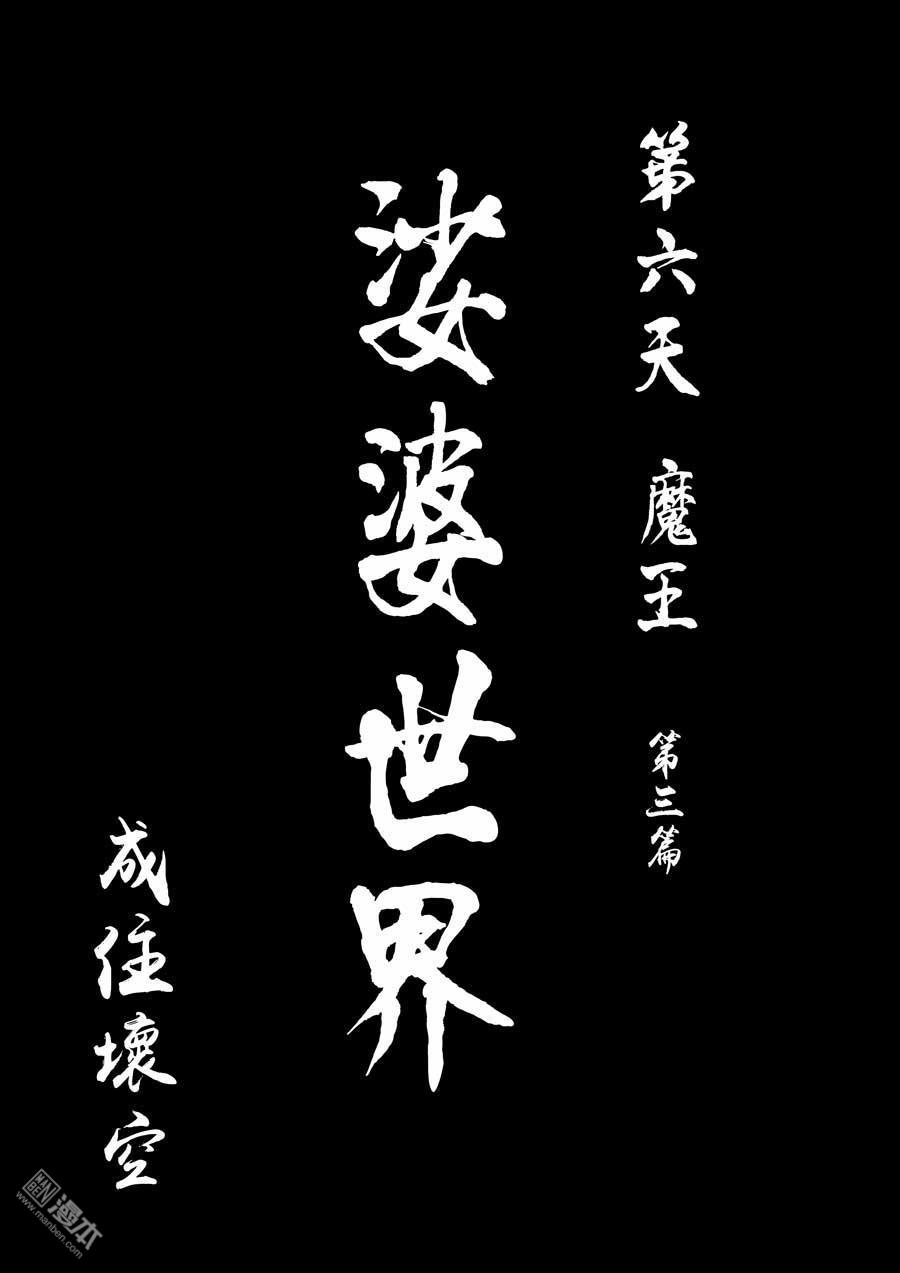 第六天 魔王 第三篇
娑婆世界
成住壞空
MANBEN 漫本
www.manben.com